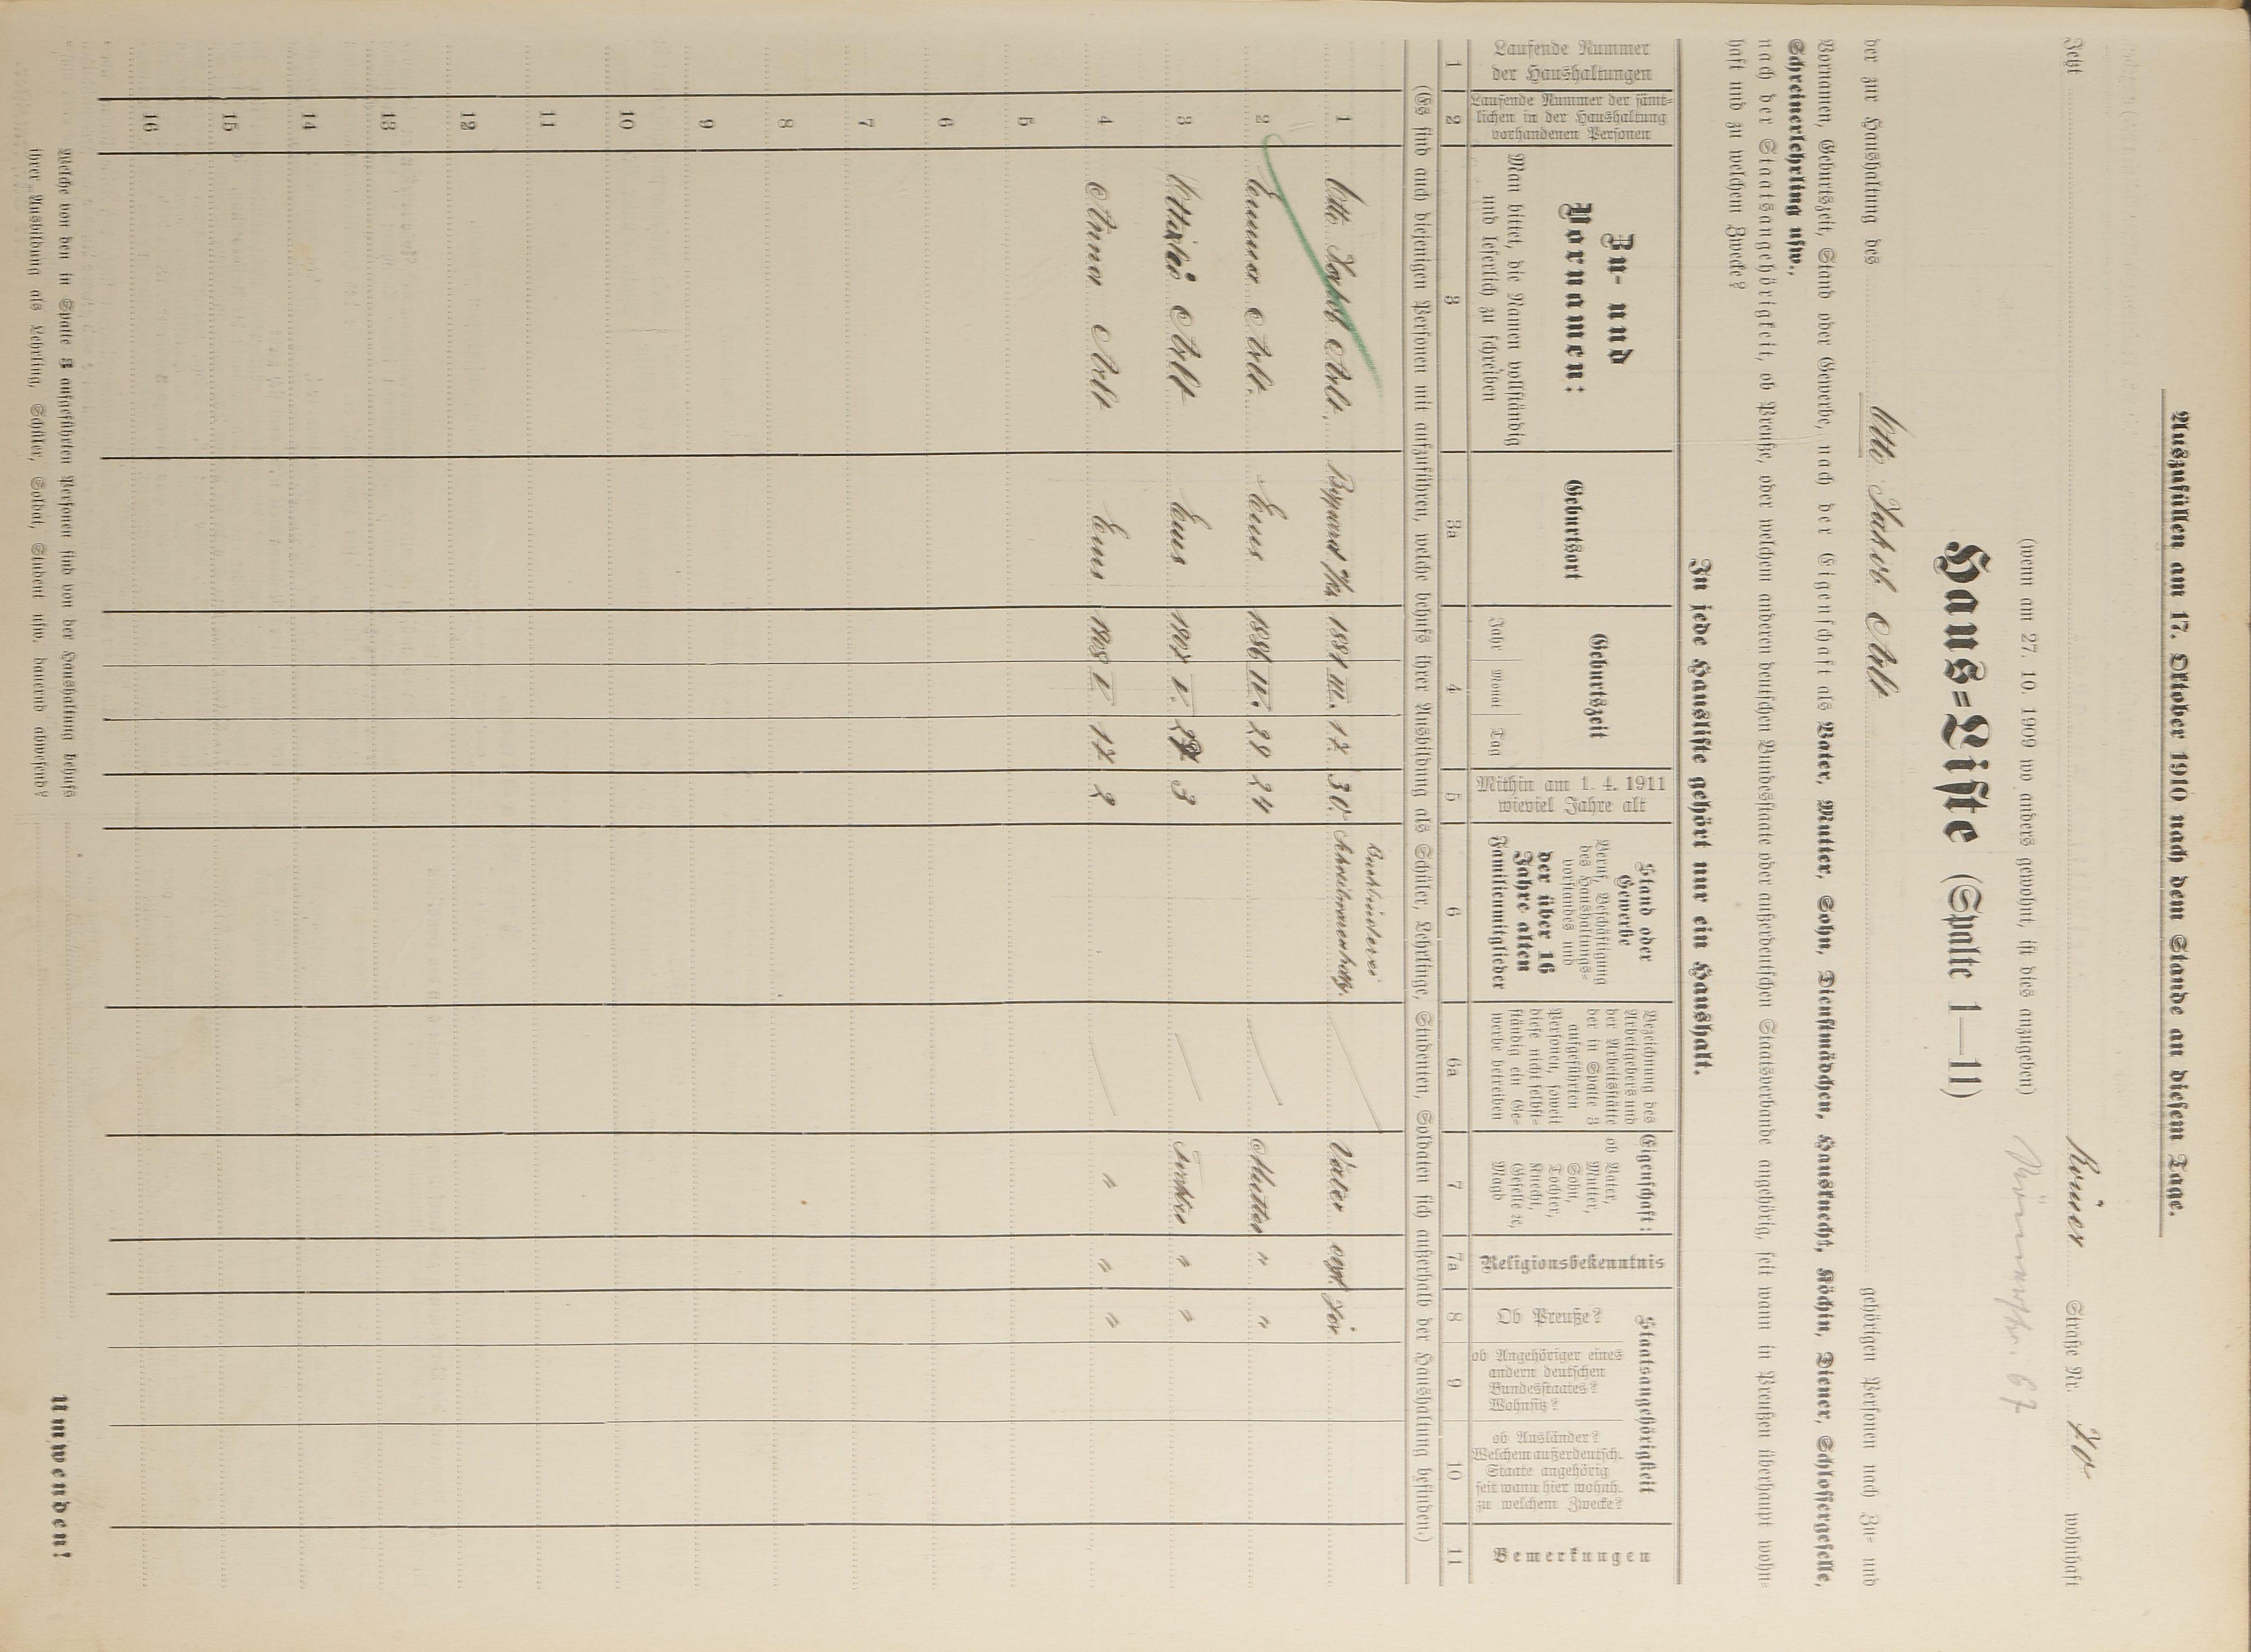 Auszufüllen am 17. Oktober 1910 nach dem Stande an diesem Tage.
Jetzt Römer Straße Nr. 70 wohnhaft
(wenn am 27. 10. 1909 wo anders gewohnt, ist dies anzugeben) 67
Haus=Liste (Spalte 1—11)
der zur Haushaltung des Otto Jakob Arlt gehörigen Personen nach Zu= und
Vornamen, Geburtszeit, Stand oder Gewerbe, nach der Eigenschaft als Vater, Mutter, Sohn, Dienstmädchen, Hausknecht, Köchin, Diener, Schlossergeselle,
Schreinerlehrling usw.,
nach der Staatsangehörigkeit, ob Preuße, oder welchem anderen deutschen Bundesstaate oder außerdeutschen Staatsverbande angehörig, seit wann in Preußen überhaupt wohn=
haft und zu welchem Zwecke?
In jede Hausliste gehört nur ein Haushalt.
Laufende Nummer
der Haushaltungen
Laufende Nummer der sämt=
lichen in der Haushaltung
vorhandenen Personen
Zu- und
Vornamen:
Man bittet, die Namen vollständig
und leserlich zu schreiben
Geburtsort
Geburtszeit
Jahr Monat Tag
Mithin am 1. 4. 1911
wieviel Jahre alt
Stand oder
Gewerbe
Beruf, Beschäftigung
des Haushaltungs=
vorstandes und
der über 16
Jahre alten
Familienmitglieder
Bezeichnung des
Arbeitgebers und
der Arbeitsstätte
der in Spalte 3
aufgeführten
Personen, soweit
diese nicht selbst=
ständig ein Ge=
werbe betreiben
Eigenschaft:
ob Vater,
Mutter,
Sohn,
Tochter,
Knecht,
Geselle ꝛc,
Magd
Religionsbekenntnis
Staatsangehörigkeit
Ob Preuße?
ob Angehöriger eines
andern deutschen
Bundesstaates?
Wohnsitz?
ob Ausländer?
Welchem außerdeutsch.
Staate angehörig
seit wann hier wohnh.
zu welchem Zwecke?
Bemerkungen
1 2 3 3a 4 5 6 6a 7 7a 8 9 10 11
(Es sind auch diejenigen Personen mit aufzuführen, welche behufs ihrer Ausbildung als Schüler, Lehrlinge, Studenten, Soldaten sich außerhalb der Haushaltung befinden.)
Buchbinderei
1 Otto Jakob Arlt. 1881 III. 17. 30. Vater
2 Emma Arlt. Ems 1886 IV. 29 24 Mutter " "
3 Ottilie Arlt Ems 1907 V. 3 Tochter " "
4 Anna Arlt Ems 1908 V 17 2 " " "
5
6
7
8
9
10
11
12
13
14
15
16
Welche von den in Spalte 3 aufgeführten Personen sind von der Haushaltung behufs
ihrer Ausbildung als Lehrling, Schüler, Soldat, Student usw. dauernd abwesend?
Umwenden!